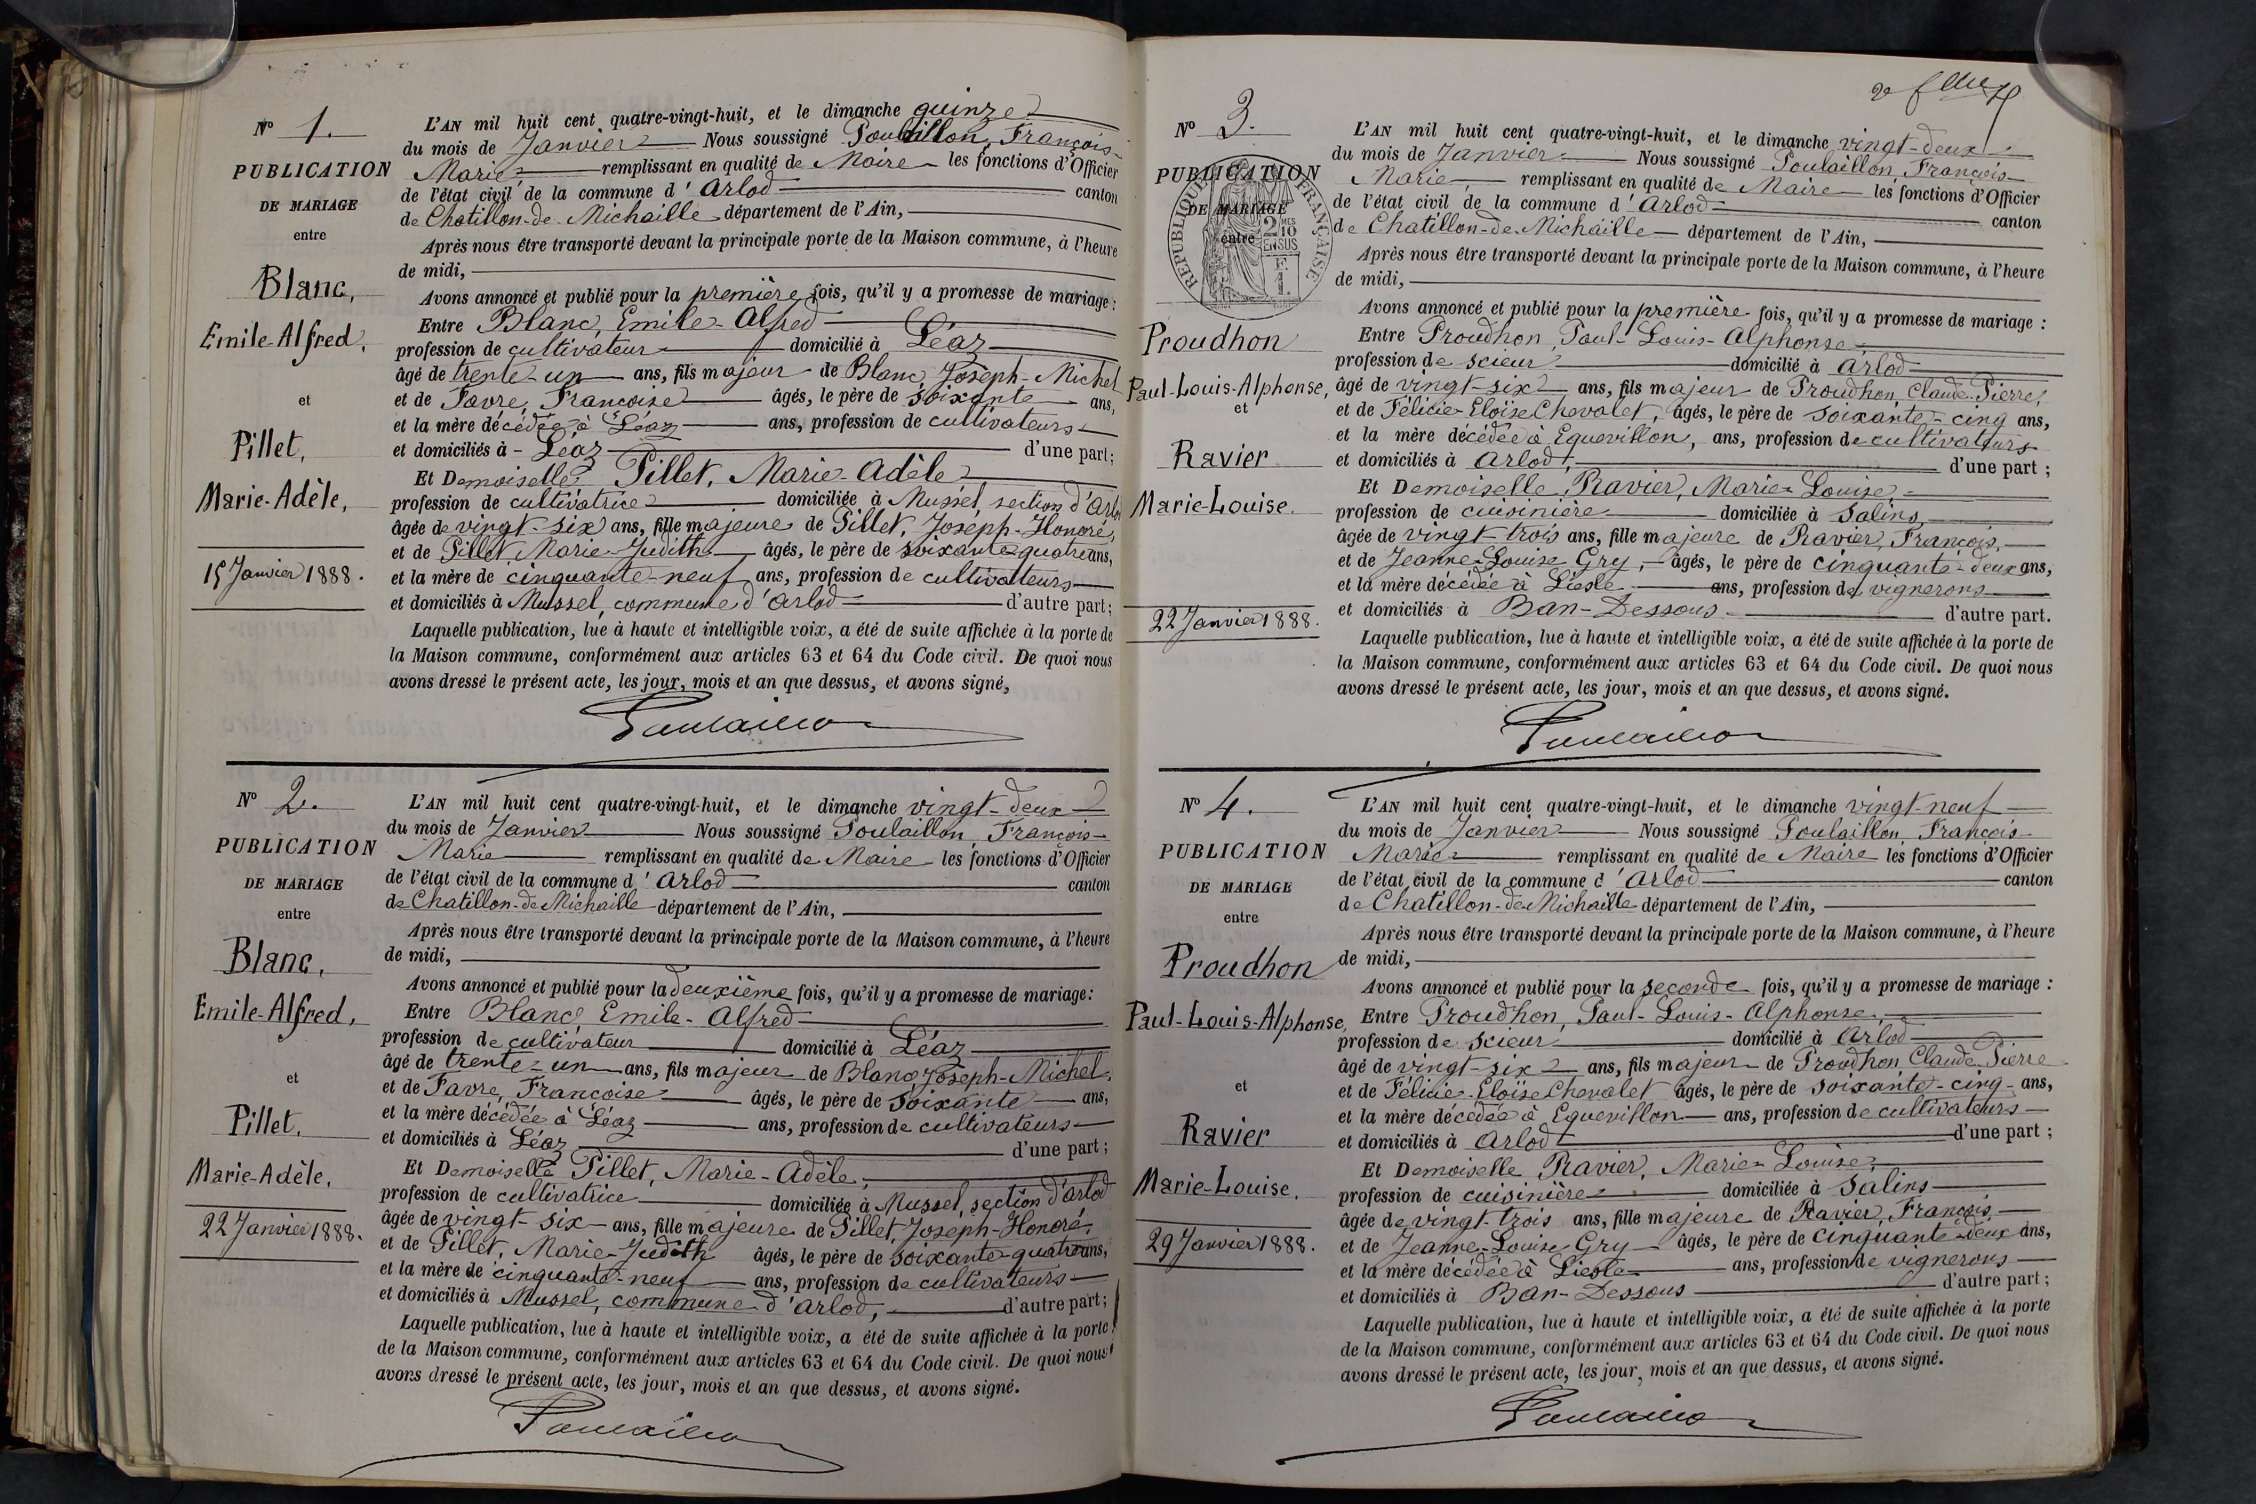 N° 1.
PUBLICATION
DE MARIAGE
entre
Blanc,
Emile-Alfred,
et
Pillet,
Marie-Adèle,
15 Janvier 1888.
L'AN mil huit cent quatre-vingt-huit, et le dimanche quinze
du mois de Janvier Nous soussigné Poulaillon, François-
Marie remplissant en qualité de Maire les fonctions d'Officier
de l'état civil de la commune d'Arlod canton
de Chatillon-de-Michaille département de l'Ain,
Après nous être transporté devant la principale porte de la Maison commune, à l'heure
de midi,
Avons annoncé et publié pour la première fois, qu'il y a promesse de mariage :
Entre Blanc, Emile-Alfred
profession de cultivateur domicilié à Léaz
âgé de trente-un ans, fils majeur de Blanc, Joseph-Michel
et de Favre, Françoise âgés, le père de soixante ans,
et la mère décédée à Léaz ans, profession de cultivateurs
et domiciliés à - Léaz d'une part;
Et Demoiselle Pillet, Marie-Adèle
profession de cultivatrice domiciliée à Mussel, section d'Arlod
âgée de vingt-six ans, fille majeure de Pillet, Joseph-Honoré,
et de Pillet, Marie-Judith âgés, le père de soixante-quatre ans,
et la mère de cinquante-neuf ans, profession de cultivateurs
et domiciliés à Mussel, commune d'Arlod d'autre part;
Laquelle publication, lue à haute et intelligible voix, a été de suite affichée à la porte de
la Maison commune, conformément aux articles 63 et 64 du Code civil. De quoi nous
avons dressé le présent acte, les jour, mois et an que dessus, et avons signé,
Poulaillon
N° 2.
PUBLICATION
DE MARIAGE
entre
Blanc,
Emile-Alfred,
et
Pillet,
Marie-Adèle,
22 Janvier 1888.
L'AN mil huit cent quatre-vingt-huit, et le dimanche vingt-deux
du mois de Janvier Nous soussigné Poulaillon, François-
Marie remplissant en qualité de Maire les fonctions d'Officier
de l'état civil de la commune d'Arlod canton
de Chatillon-de-Michaille département de l'Ain,
Après nous être transporté devant la principale porte de la Maison commune, à l'heure
de midi,
Avons annoncé et publié pour la deuxième fois, qu'il y a promesse de mariage:
Entre Blanc, Emile-Alfred
profession de cultivateur domicilié à Léaz
âgé de trente-un ans, fils majeur de Blanc, Joseph-Michel,
et de Favre, Françoise âgés, le père de soixante ans,
et la mère décédée à Léaz ans, profession de cultivateurs
et domiciliés à Léaz d'une part;
Et Demoiselle Pillet, Marie-Adèle,
profession de cultivatrice domiciliée à Mussel, section d'Arlod
âgée de vingt-six ans, fille majeure de Pillet, Joseph-Honoré,
et de Pillet, Marie-Judith âgés, le père de soixante-quatre ans,
et la mère de cinquante-neuf ans, profession de cultivateurs
et domiciliés à Mussel, commune d'Arlod, d'autre part;
Laquelle publication, lue à haute et intelligible voix, a été de suite affichée à la porte
de la Maison commune, conformément aux articles 63 et 64 du Code civil. De quoi nous
avons dressé le présent acte, les jour, mois et an que dessus, et avons signé.
Poulaillon
N° 3.
PUBLICATION
DE MARIAGE
entre
RÉPUBLIQUE FRANÇAISE
2 MES 10
EN SUS
Proudhon
Paul-Louis-Alphonse,
et
Ravier
Marie-Louise.
22 Janvier 1888.
L'AN mil huit cent quatre-vingt-huit, et le dimanche vingt-deux
du mois de Janvier Nous soussigné Poulaillon, François-
Marie remplissant en qualité de Maire les fonctions d'Officier
de l'état civil de la commune d'Arlod canton
de Chatillon-de-Michaille département de l'Ain,
Après nous être transporté devant la principale porte de la Maison commune, à l'heure
de midi,
Avons annoncé et publié pour la première fois, qu'il y a promesse de mariage :
Entre Proudhon, Paul-Louis-Alphonse
profession de scieur domicilié à Arlod
âgé de vingt-six ans, fils majeur de Proudhon, Claude-Pierre,
et de Félicie-Eloïse Chevalet, âgés, le père de soixante-cinq ans,
et la mère décédée à Equevillon, ans, profession de cultivateurs
et domiciliés à Arlod, d'une part ;
Et Demoiselle, Ravier, Marie-Louise,
profession de cuisinière domiciliée à Salins
âgée de vingt-trois ans, fille majeure de Ravier, François,
et de Jeanne-Louise Gry, âgés, le père de cinquante-deux ans,
et la mère décédée à Liesle ans, profession de vignerons
et domiciliés à Ban-Dessous d'autre part.
Laquelle publication, lue à haute et intelligible voix, a été de suite affichée à la porte de
la Maison commune, conformément aux articles 63 et 64 du Code civil. De quoi nous
avons dressé le présent acte, les jour, mois et an que dessus, et avons signé.
Poulaillon
N° 4.
PUBLICATION
DE MARIAGE
entre
Proudhon
Paul-Louis-Alphonse,
et
Ravier
Marie-Louise.
29 Janvier 1888.
L'AN mil huit cent quatre-vingt-huit, et le dimanche vingt-neuf
du mois de Janvier Nous soussigné Poulaillon, François-
Marie remplissant en qualité de Maire les fonctions d'Officier
de l'état civil de la commune d'Arlod canton
de Chatillon-de-Michaille département de l'Ain,
Après nous être transporté devant la principale porte de la Maison commune, à l'heure
de midi,
Avons annoncé et publié pour la seconde fois, qu'il y a promesse de mariage :
Entre Proudhon, Paul-Louis-Alphonse,
profession de scieur domicilié à Arlod
âgé de vingt-six ans, fils majeur de Proudhon, Claude-Pierre
et de Félicie-Eloïse Chevalet âgés, le père de soixante-cinq ans,
et la mère décédée à Equevillon ans, profession de cultivateurs
et domiciliés à Arlod d'une part ;
Et Demoiselle Ravier, Marie-Louise,
profession de cuisinière domiciliée à Salins
âgée de vingt-trois ans, fille majeure de Ravier, François,
et de Jeanne-Louise Gry âgés, le père de cinquante-deux ans,
et la mère décédée à Liesle ans, profession de vignerons
et domiciliés à Ban-Dessous d'autre part ;
Laquelle publication, lue à haute et intelligible voix, a été de suite affichée à la porte
de la Maison commune, conformément aux articles 63 et 64 du Code civil. De quoi nous
avons dressé le présent acte, les jour, mois et an que dessus, et avons signé.
Poulaillon